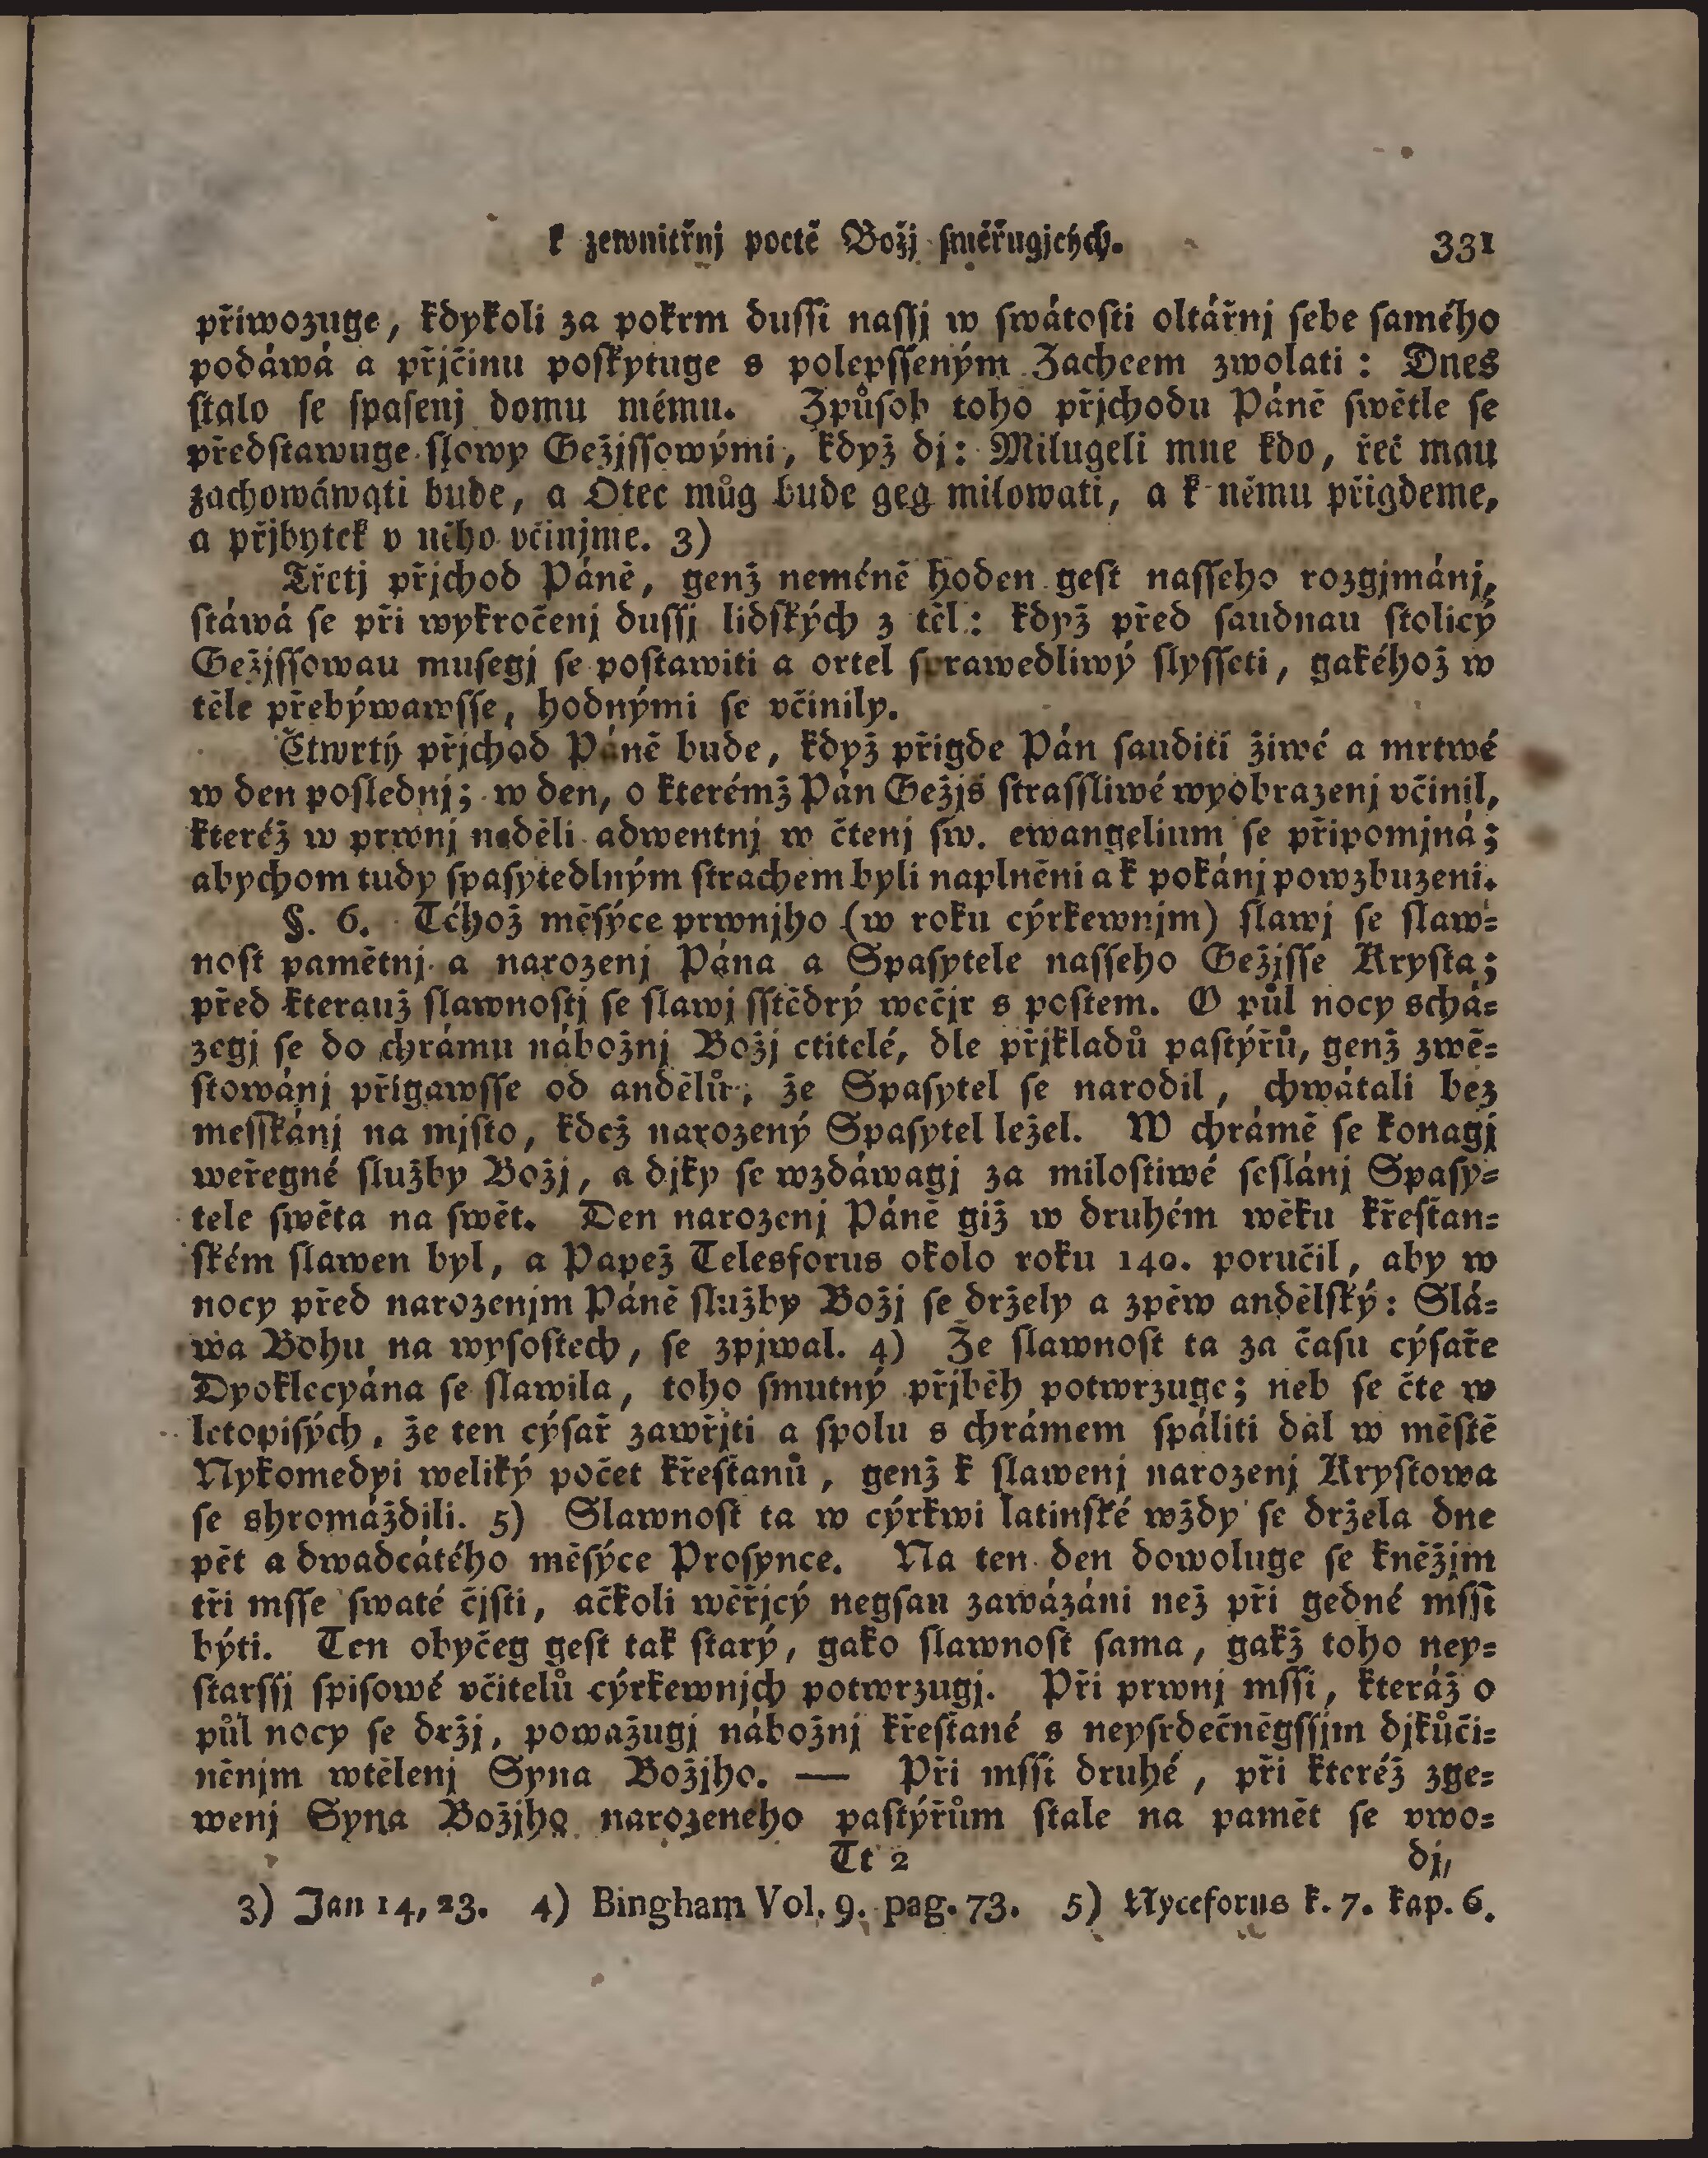 k zewnitřnj poctě Božj ſměřugjcých. 331
přiwozuge, kdykoli za pokrm duſſi naſſj w ſwátoſti oltářnj ſebe ſamého
podáwá a přjčinu poſkytuge s polepſſeným Zacheem zwolati: Dnes
ſtalo ſe ſpaſenj domu mému. Způſob toho přjchodu Páně ſwětle ſe
předſtawuge ſlowy Gežjſſowými, když dj: Milugeli mne kdo, řeč mau
zachowáwati bude, a Otec můg bude geg milowati, a k němu přigdeme,
a přjbytek v něho včinjme. 3)
Třetj přjchod Páně, genž neméně hoden geſt naſſeho rozgjmánj,
ſtáwá ſe při wykročenj duſſj lidſkých z těl: když před ſaudnau ſtolicý
Gežjſſowau muſegj ſe poſtawiti a ortel ſprawedliwý ſlyſſeti, gakéhož w
těle přebýwawſſe, hodnými ſe včinily.
Čtwrtý přjchod Páně bude, když přigde Pán ſauditi žiwé a mrtwé
w den poſlednj; w den, o kterémž Pán Gežjs ſtraſſliwé wyobrazenj včinil,
kteréž w prwnj neděli adwentnj w čtenj ſw. ewangelium ſe připomjná;
abychom tudy ſpaſytedlným ſtrachem byli naplněni a k pokánj powzbuzeni.
§. 6. Téhož měſýce prwnjho (w roku cýrkewnjm) ſlawj ſe ſlaw⸗
noſt pamětnj a narozenj Pána a Spaſytele naſſeho Gežjſſe Kryſta;
před kterauž ſlawnoſtj ſe ſlawj ſſtědrý wečjr s poſtem. O půl nocy schá⸗
zegj ſe do chrámu nábožnj Božj ctitelé, dle přjkladů paſtýřů, genž zwě⸗
ſtowánj přigawſſe od andělůr, že Spaſytel ſe narodil, chwátali bez
meſſkánj na mjſto, kdež narozený Spaſytel ležel. W chrámě ſe konagj
weřegné ſlužby Božj, a djky ſe wzdáwagj za miloſtiwé ſeſlánj Spaſy⸗
tele ſwěta na ſwět. Den narozenj Páně giž w druhém wěku křeſťan⸗
ſkém ſlawen byl, a Papež Telesforus okolo roku 140. poručil, aby w
nocy před narozenjm Páně ſlužby Božj ſe držely a zpěw andělſký: Slá⸗
wa Bohu na wyſoſtech, ſe zpjwal. 4) Že ſlawnoſt ta za čaſu cýſaře
Dyoklecyána ſe ſlawila, toho ſmutný přjběh potwrzuge; neb ſe čte w
letopiſých, že ten cýſař zawřjti a ſpolu s chrámem ſpáliti dal w měſtě
Nykomedyi weliký počet křeſťanů, genž k ſlawenj narozenj Kryſtowa
ſe shromáždili. 5) Slawnoſt ta w cýrkwi latinſké wždy ſe držela dne
pět a dwadcátého měſýce Proſynce. Na ten den dowoluge ſe kněžjm
tři mſſe ſwaté čjſti, ačkoli wěřjcý negſau zawázáni než při gedné mſſi
býti. Ten obyčeg geſt tak ſtarý, gako ſlawnoſt ſama, gakž toho ney⸗
ſtarſſj ſpiſowé včitelů cýrkewnjch potwrzugj. Při prwnj mſſi, kteráž o
půl nocy ſe držj, powažugj nábožnj křeſťané s neyſrdečněgſſjm djkůči⸗
něnjm wtělenj Syna Božjho. — Při mſſi druhé, při kteréž zge⸗
wenj Syna Božjho narozeného paſtýřům ſtale na pamět ſe vwo⸗
Tt 2 dj,
3) Jan 14, 23. 4) Bingham Vol. 9. pag. 73. 5) Nyceforus k. 7. kap. 6.